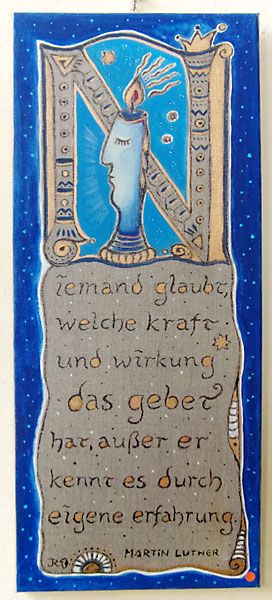 N
iemand glaubt,
welche kraft
und wirkung
das gebet
hat, außer er
kennt es durch
eigene erfahrung.
MARTIN LUTHER